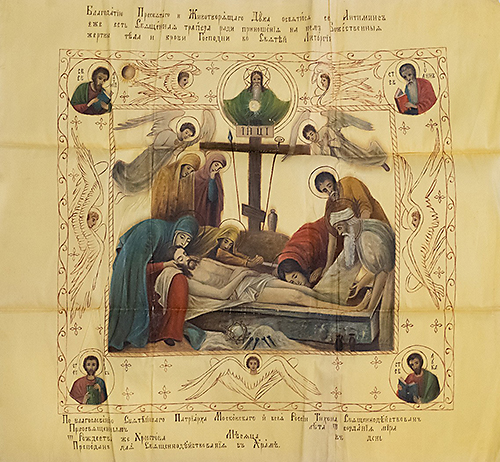 Благодатїю Пресвятаго и Животворящаго Духа освятися сей Антиминсъ
еже есть Священная трапеза ради приношенїя на немъ Божественныя
жертвы тѣла и крови Господни во Святѣй
IНЦI
По благословенїю Святѣйшаго Патрїарха Московскаго и всея Россїи Тихона Священнодѣйствованъ
Преосвященнымъ лѣта мїра
Рождества же Христова Мѣсяца въ день
для Священнодѣйствованїя въ Храмѣ.